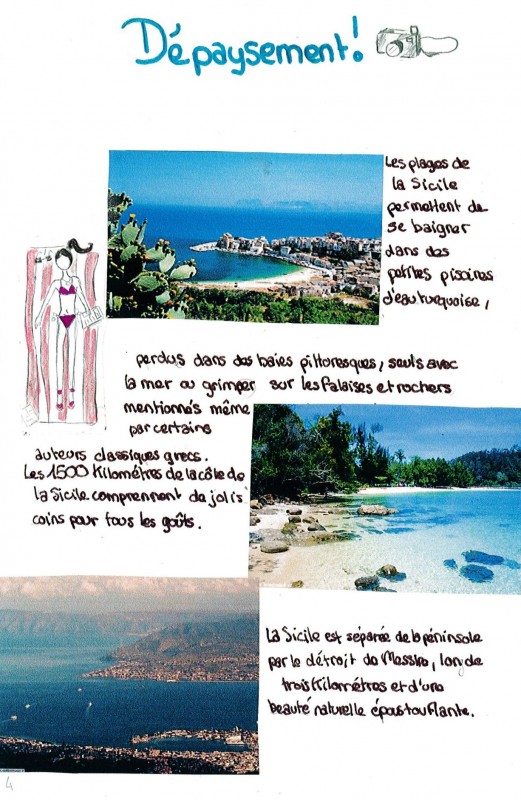 Dépaysement!
Les plages de
la Sicile
permettent de
se baigner
dans des
petites piscines
d'eau turquoise,
perdus dans des baies pittoresques, seuls avec
la mer ou grimper sur les falaises et rochers
mentionnés même
par certains
auteurs classiques grecs.
Les 1500 kilomètres de la côte de
la Sicile comprennent de jolis
coins pour tous les goûts.
La Sicile est séparée de la péninsule
par le détroit de Messine, long de
trois kilomètres et d'une
beauté naturelle époustouflante.
4